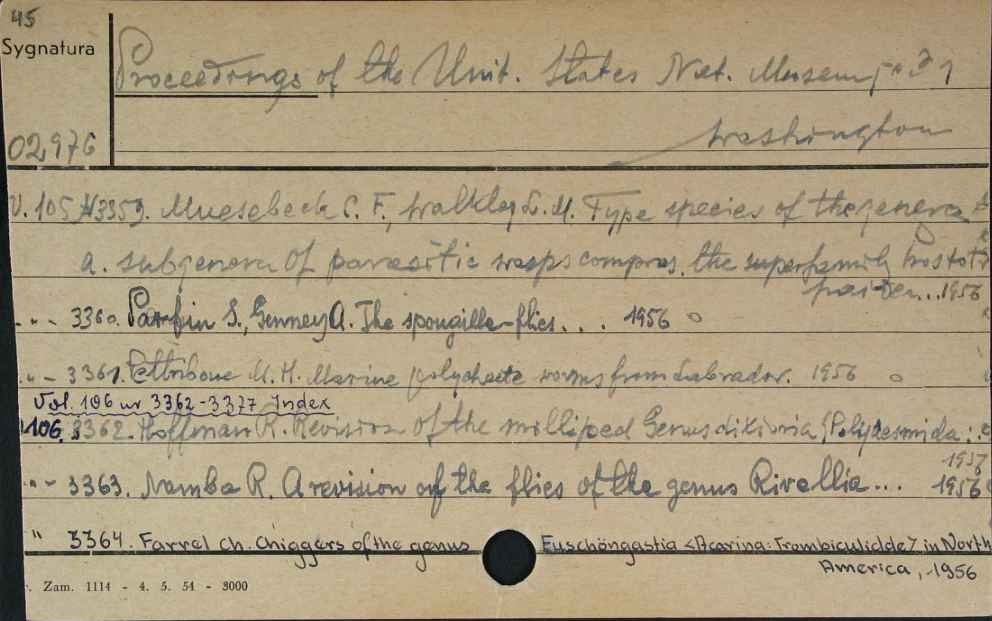 45
Sygnatura
Proceedings of the Unit. States Nat. Museum
Washington
02976
V. 105 N 3359. Muesebeck C. F., Walkley L. M. Type species of the genera
a. subgenera of parasitic wasps compris. the superfamily
1956
" - 3360. Parfin S., Gurney A. The spongilla-flies... 1956
" - 3361. Pettibone M. H. Marine polychaete worms from Labrador. 1956
Vol. 106 nr 3362-3377 Index
106. 3362. Hoffman R. Revision of the milliped Genus (Polydesmida:
1956
" - 3363. Namba R. A revision of the flies of the genus Rivellia... 1956
" 3364. Farrel Ch. Chiggers of the genus Euschöngastia <Acarina: Trombiculidde> in North
America, 1956
Zam. 1114 - 4. 5. 54 - 3000